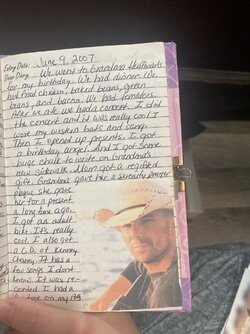 Entry Date: June 9, 2007
Dear Diary, We went to Grandma Huffman's
for my birthday. We had dinner. We
had fried chicken, baked beans, green
beans, and bacon. We had tomatoes.
After we ate we had a concert. I did
the concert and it was really cool. I
wore my western hats and sang.
Then I opened up presents. I got
a birthday angel. And I got some
huge chalk to write on Grandma's
new sidewalk. Mom got a regifted
gift. Grandma gave her a serenity prayer
plaque she gave
her for a present
a long time ago.
I got an adult
bike. It's really
cool. I also got
a C.D. of Kenney
Chesney. It has a
few songs I don't
know. It was re-
corded. I had a
time on my